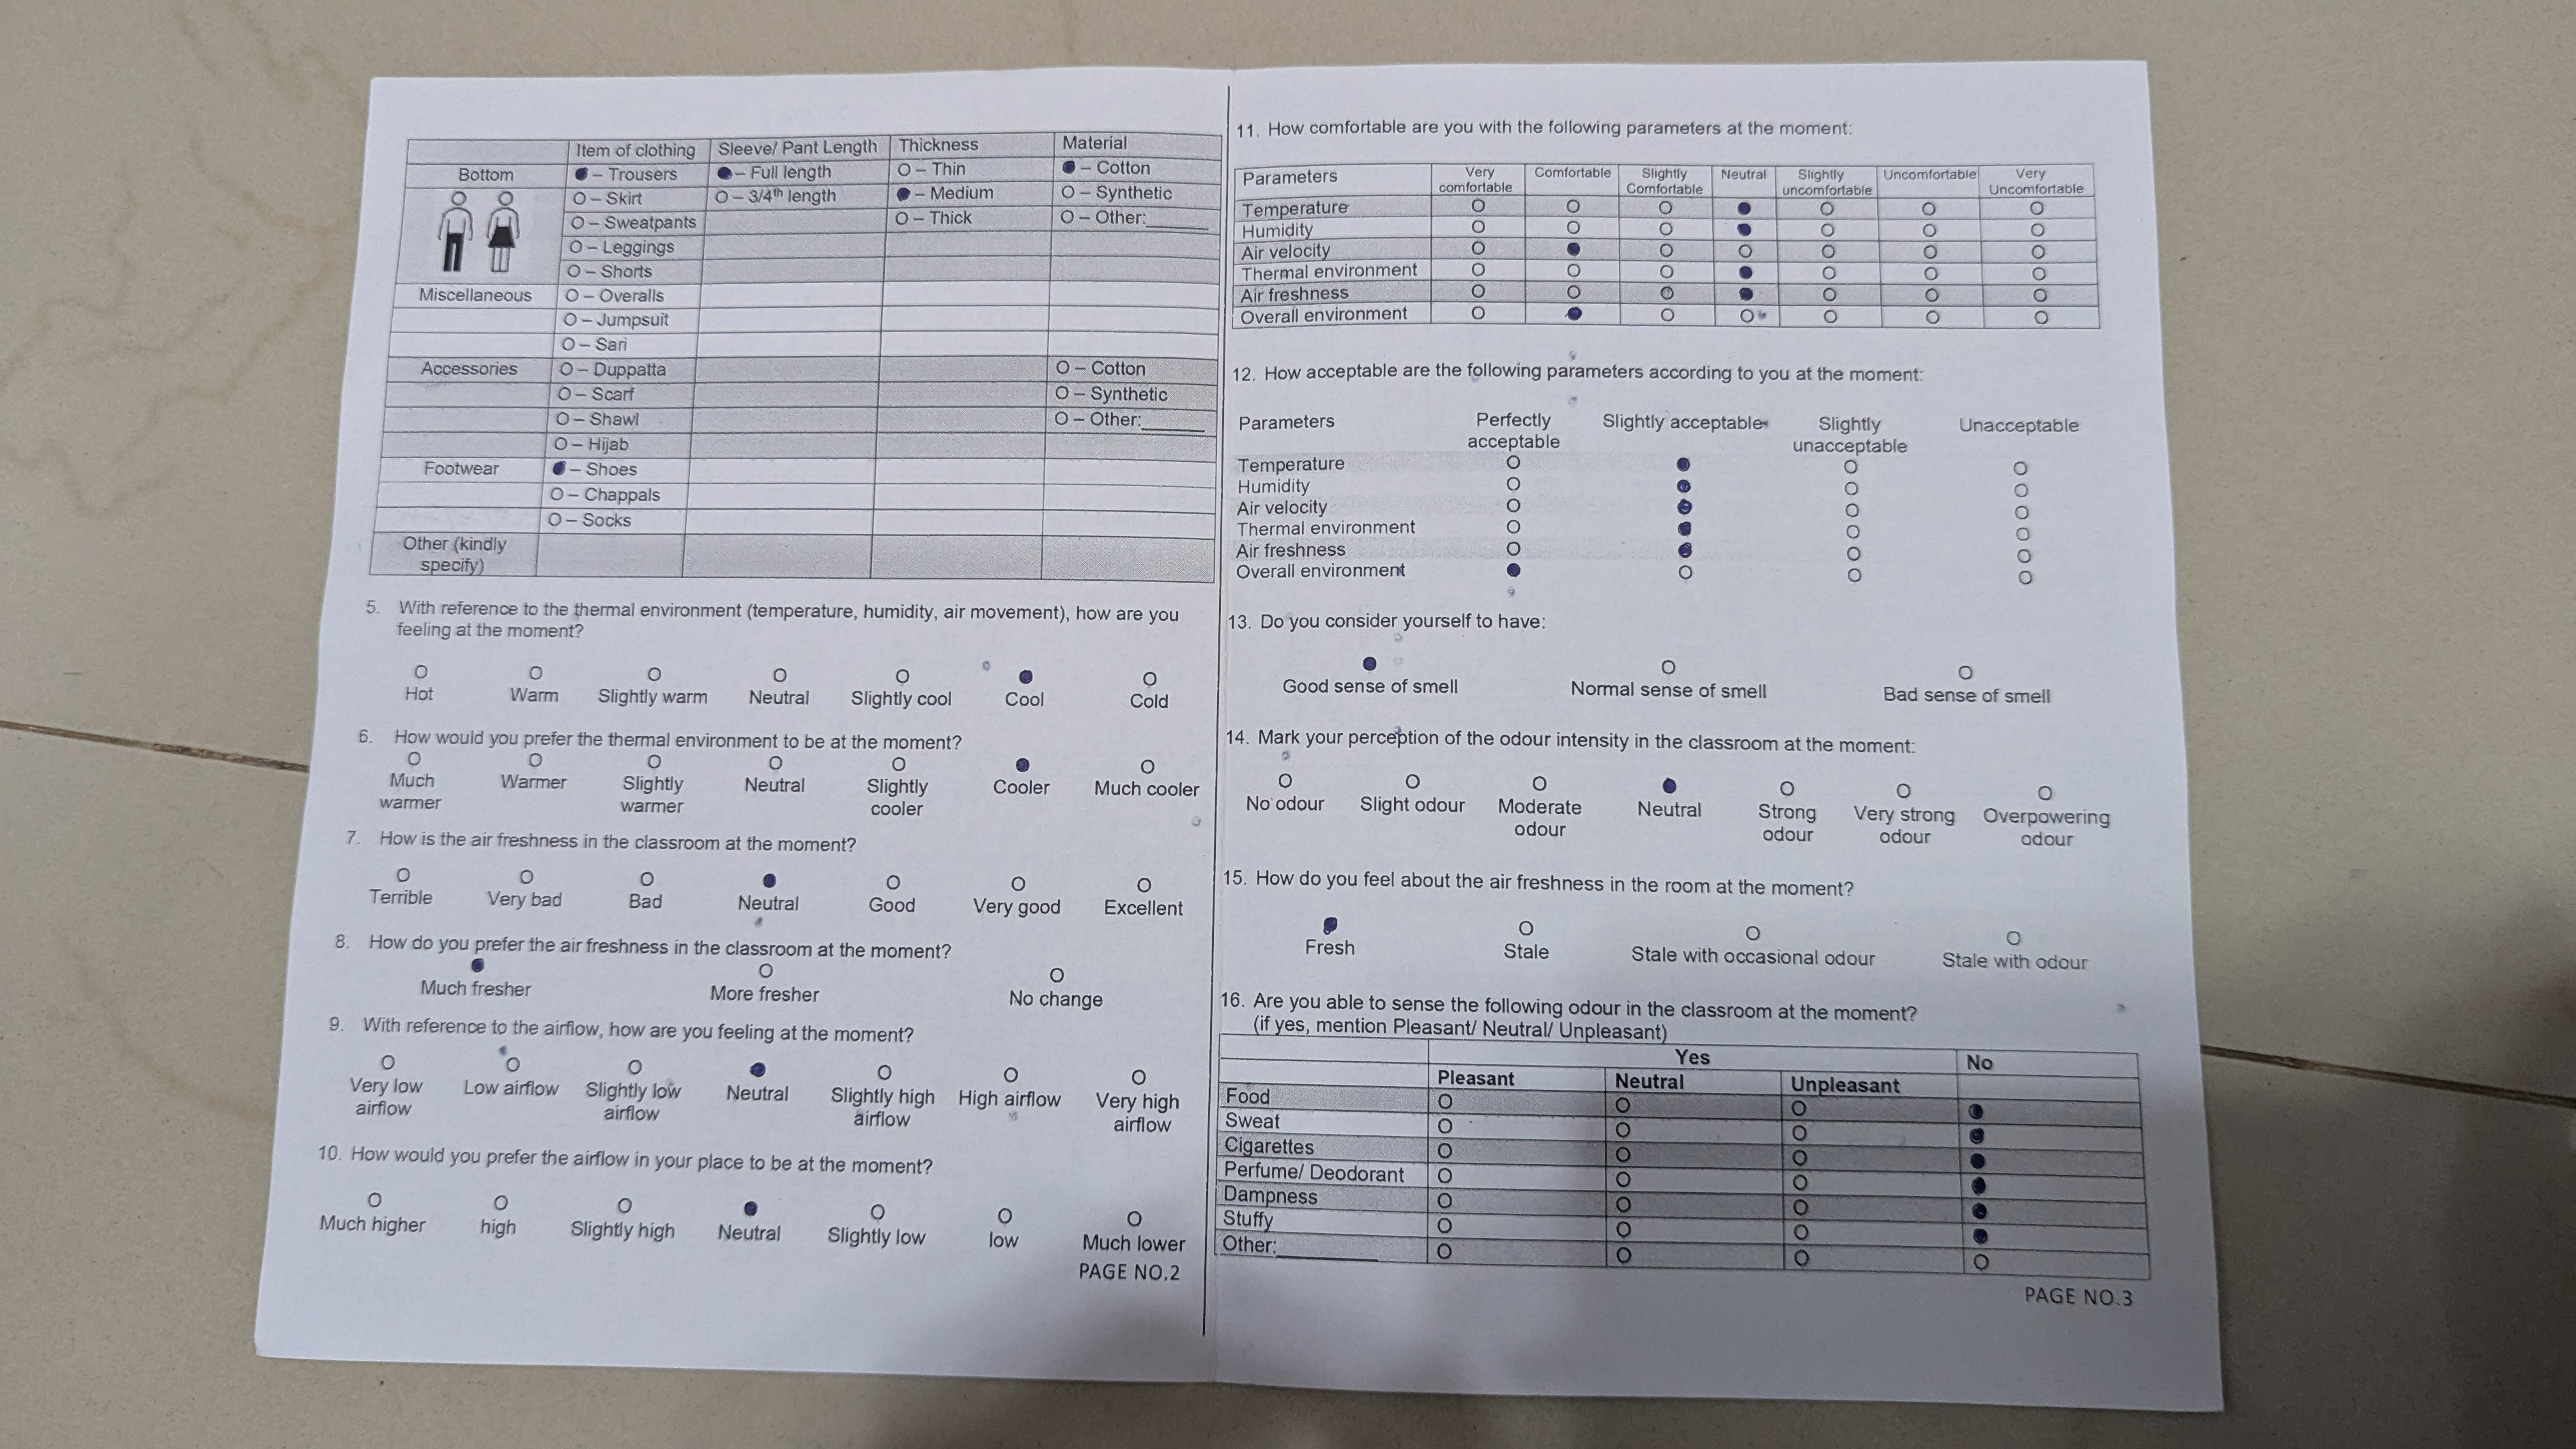 Item of clothing Sleeve/ Pant Length Thickness Material
Bottom ● – Trousers ● – Full length O – Thin ● – Cotton
O – Skirt O – 3/4th length ● – Medium O – Synthetic
O – Sweatpants O – Thick O – Other:______
O – Leggings
O – Shorts
Miscellaneous O – Overalls
O – Jumpsuit
O – Sari
Accessories O – Duppatta O – Cotton
O – Scarf O – Synthetic
O – Shawl O – Other:______
O – Hijab
Footwear ● – Shoes
O – Chappals
O – Socks
Other (kindly
specify)
5. With reference to the thermal environment (temperature, humidity, air movement), how are you
feeling at the moment?
O O O O O ● O
Hot Warm Slightly warm Neutral Slightly cool Cool Cold
6. How would you prefer the thermal environment to be at the moment?
O O O O O ● O
Much Warmer Slightly Neutral Slightly Cooler Much cooler
warmer warmer cooler
7. How is the air freshness in the classroom at the moment?
O O O ● O O O
Terrible Very bad Bad Neutral Good Very good Excellent
8. How do you prefer the air freshness in the classroom at the moment?
● O O
Much fresher More fresher No change
9. With reference to the airflow, how are you feeling at the moment?
O O O ● O O O
Very low Low airflow Slightly low Neutral Slightly high High airflow Very high
airflow airflow airflow airflow
10. How would you prefer the airflow in your place to be at the moment?
O O O ● O O O
Much higher high Slightly high Neutral Slightly low low Much lower
PAGE NO.2
11. How comfortable are you with the following parameters at the moment:
Parameters Very Comfortable Slightly Neutral Slightly Uncomfortable Very
comfortable Comfortable uncomfortable Uncomfortable
Temperature O O O ● O O O
Humidity O O O ● O O O
Air velocity O ● O O O O O
Thermal environment O O O ● O O O
Air freshness O O O ● O O O
Overall environment O ● O O O O O
12. How acceptable are the following parameters according to you at the moment:
Parameters Perfectly Slightly acceptable Slightly Unacceptable
acceptable unacceptable
Temperature O ● O O
Humidity O ● O O
Air velocity O ● O O
Thermal environment O ● O O
Air freshness O ● O O
Overall environment ● O O O
13. Do you consider yourself to have:
● O O
Good sense of smell Normal sense of smell Bad sense of smell
14. Mark your perception of the odour intensity in the classroom at the moment:
O O O ● O O O
No odour Slight odour Moderate Neutral Strong Very strong Overpowering
odour odour odour odour
15. How do you feel about the air freshness in the room at the moment?
● O O O
Fresh Stale Stale with occasional odour Stale with odour
16. Are you able to sense the following odour in the classroom at the moment?
(if yes, mention Pleasant/ Neutral/ Unpleasant)
Yes No
Pleasant Neutral Unpleasant
Food O O O ●
Sweat O O O ●
Cigarettes O O O ●
Perfume/ Deodorant O O O ●
Dampness O O O ●
Stuffy O O O ●
Other:__________ O O O O
PAGE NO.3